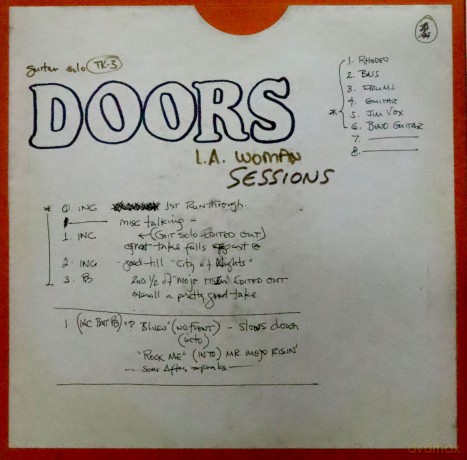 guitar solo TK-3
DOORS
L.A. WOMAN
SESSIONS
1. RHODES
2. BASS
3. DRUMS
4. GUITAR
* 5. JIM VOX
6. BEND GUITAR
7.
8.
* 0. INC 1ST Runthrough.
misc talking -
1. INC ←(GIT SOLO EDITED OUT)
great take falls apart @
2. INC good till "City of Nights"
3. PB 2nd 1/2 of "mojo risin" EDITED OUT
overall a pretty good take
1 (INC BUT PB) "? BLUES" (NO FRONT) - Slows down
(into)
"ROCK ME" (INTO) MR MOJO RISIN'